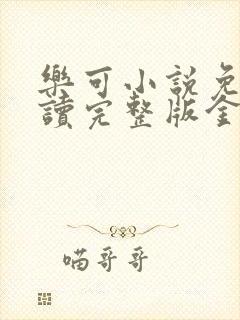 樂可小說免
讀完整版全
喵哥哥